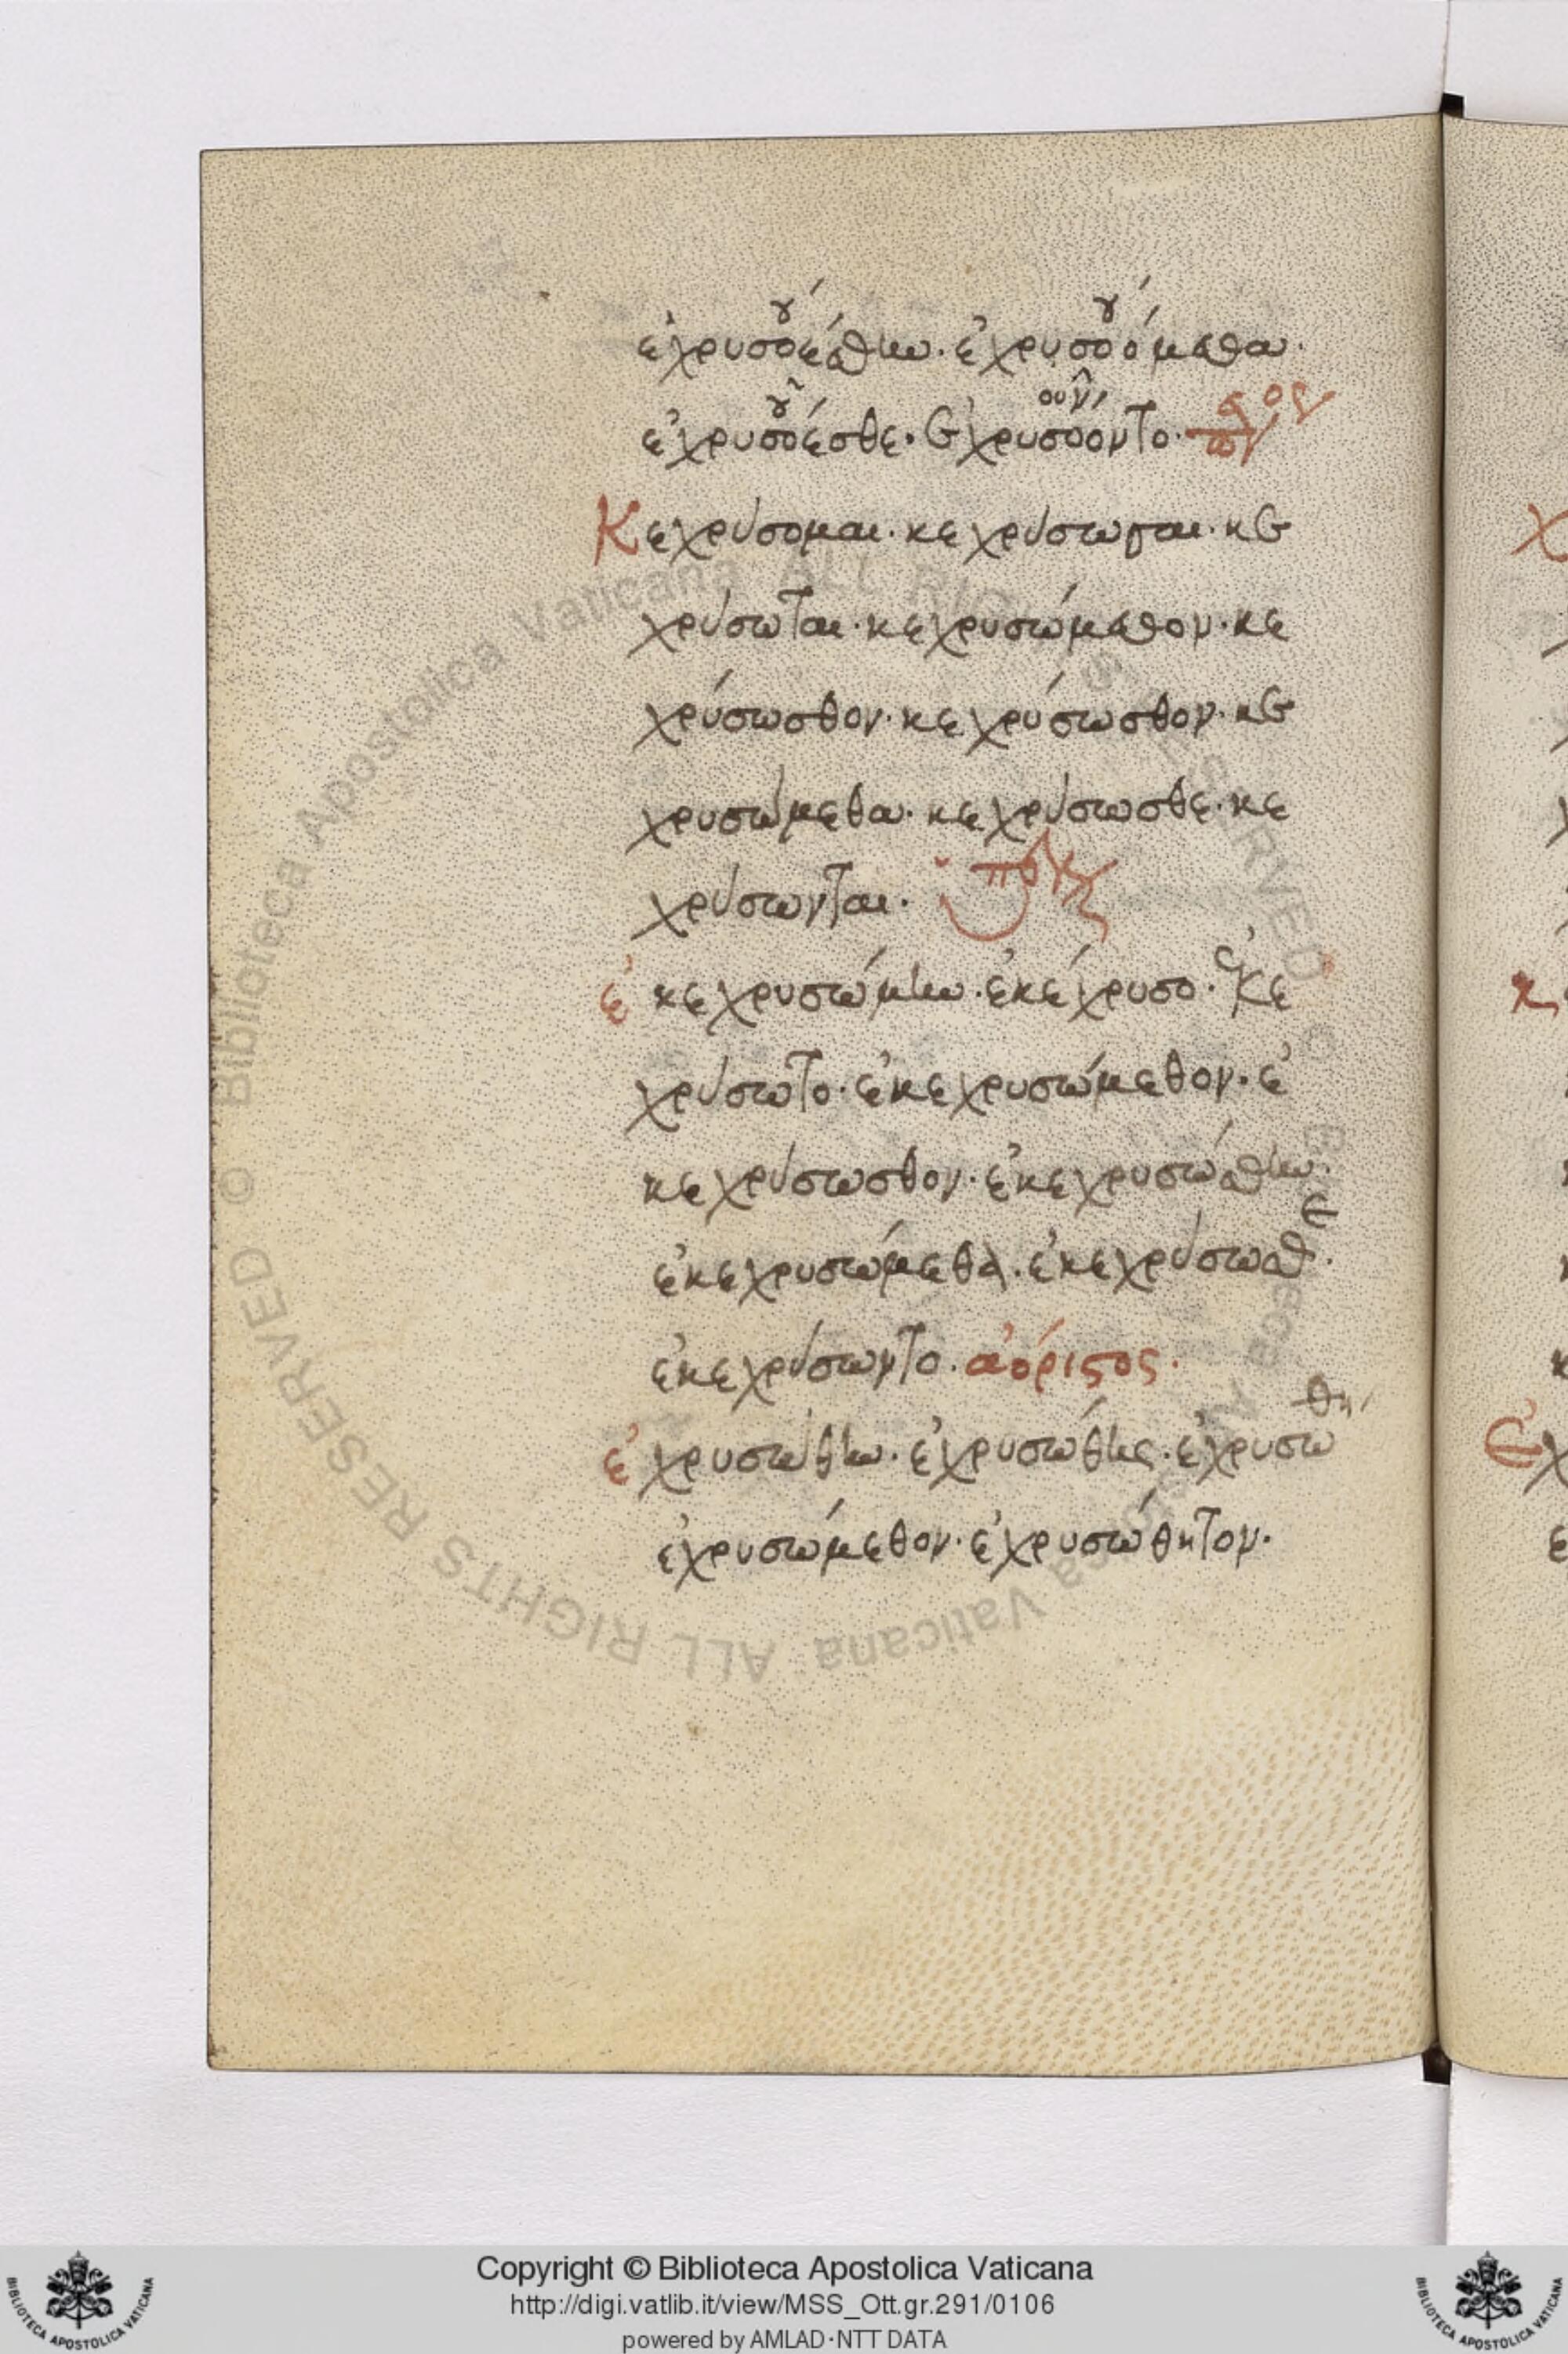 ἐχρυσοέσθην· ἐχρυσοόμεθα·
ἐχρυσοέσθε· ἐχρυσόοντο·
Κεχρύσομαι· κεχρύσωσαι· κε
χρύσωται· κεχρυσώμεθον· κε
χρύσωσθον· κεχρύσωσθον· κε
χρυσώμεθα· κεχρύσωσθε· κε
χρύσωνται·
ἐκεχρυσώμην· ἐκέχρυσο· ἐκε
χρύσωτο· ἐκεχρυσώμεθον· ἐ
κεχρύσωσθον· ἐκεχρυσώσθην·
ἐκεχρυσώμεθα· ἐκεχρύσωσθε·
ἐκεχρύσωντο· ἀόριστος·
ἐχρυσώθην· ἐχρυσώθης· ἐχρυσώθη
ἐχρυσώμεθον· ἐχρυσώθητον·
Copyright © Biblioteca Apostolica Vaticana
http://digi.vatlib.it/view/MSS_Ott.gr.291/0106
powered by AMLAD·NTT DATA
BIBLIOTECA APOSTOLICA VATICANA
BIBLIOTECA APOSTOLICA VATICANA